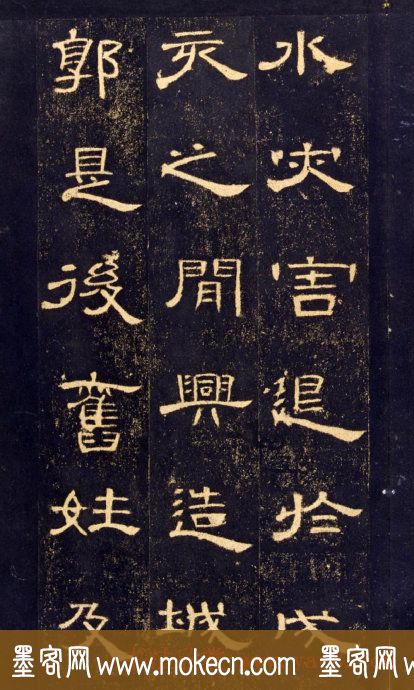 水灾害退於戌
亥之閒興造城
郭是後舊姓及
墨客网 www.mokecn.com 墨客网